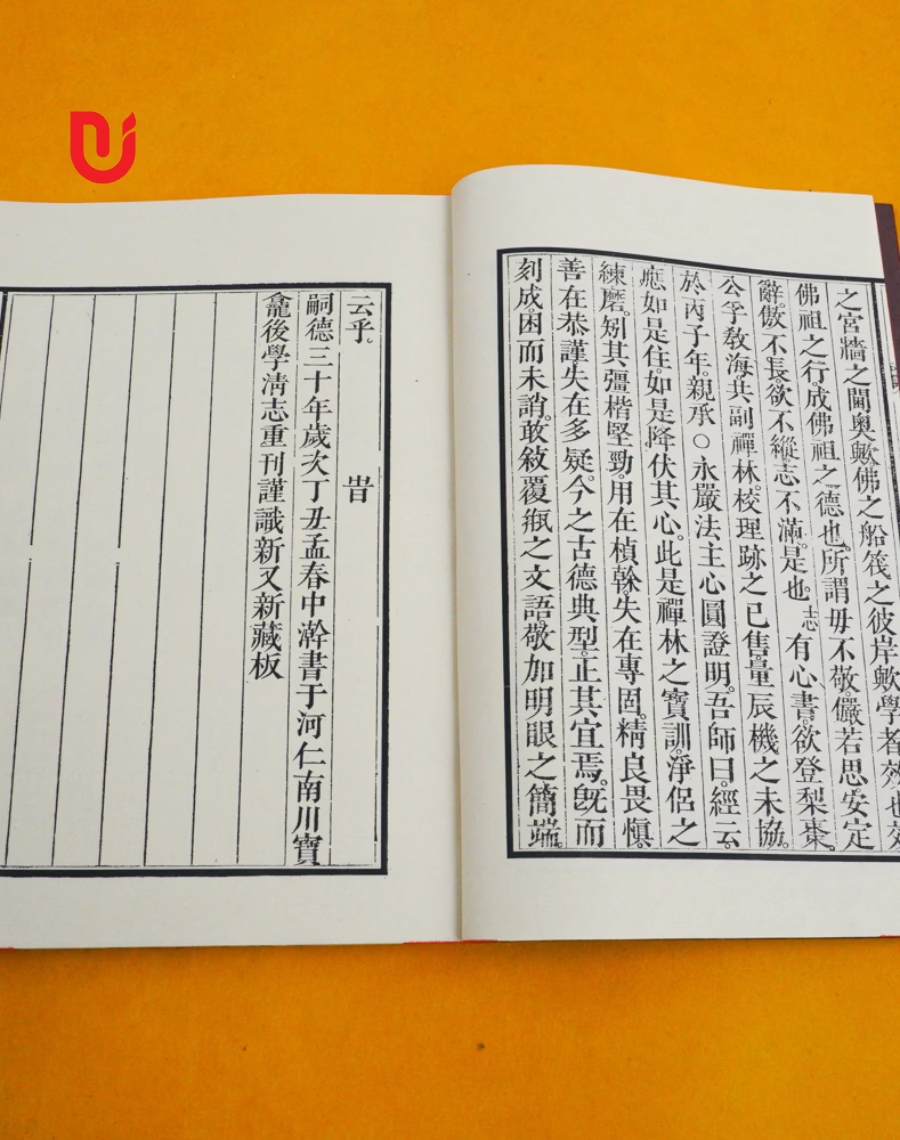 之宮牆之閫奧歟佛之船筏之彼岸歟學者效也效
佛祖之行。成佛祖之德也。所謂毋不敬。儼若思。安定
辭。傲不長。欲不縱。志不滿。是也。志有心書。欲登梨棗。
公乎教海。共副禪林。校理跡之已售。量辰機之未協。
於丙子年。親承○永嚴法主心圓證明。吾師曰。經云。
應如是住。如是降伏其心。此是禪林之寶訓。淨侶之
練磨。矧其彊楷堅勁。用在楨榦。失在專固。精良畏愼。
善在恭謹。失在多疑。今之古德典型。正其宜焉。旣而
刻成。困而未誚。敢敍覆瓶之文語。敬加明眼之簡端。
云乎。 旹
嗣德三十年歲次丁丑孟春中澣書于河仁南川寶
龕後學淸志重刊謹識新又新藏板